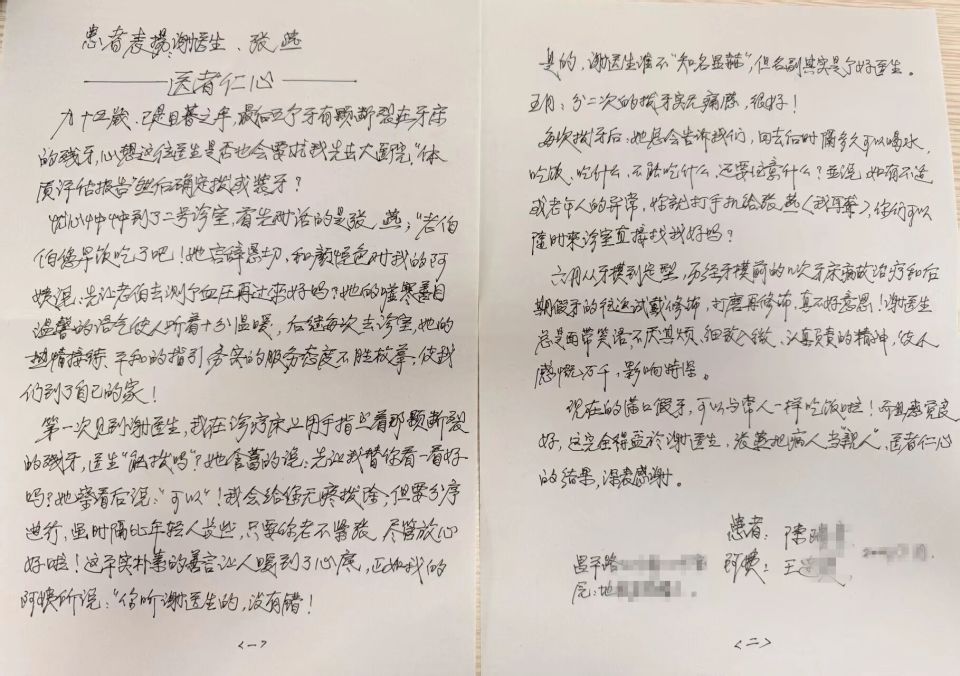 患者表揚:谢医生、张燕
医者仁心
九十五歲、已是日暮之年,最后五个牙有颗断裂在牙床
的残牙,心想这位医生是否也会要求我先去大医院,"体
质评估报告"然后确定拔或装牙?
忧心忡忡到了二号诊室,首先对话的是张燕;"老伯
伯您早饭吃了吧!她言辞恳切,和颜悦色对我的阿
姨混:先让老伯去测个血压再过来好吗?她的嘘寒善目
温馨的语气使人听着十分温暖,后继每次去诊室,她的
热情接待、平和的指引务实的服务态度不胜枚举;使我
们到了自己的家!
第一次见到谢医生,我在诊疗床上用手指着那颗断裂
的残牙,医生"能拔吗"?她含蓄的说:先让我替你看一看好
吗?她察看后说:"可以"!我会给你无疼拔除;但要分序
进行,虽时隔比年轻人长些,只要你老不紧张,尽管放心
好啦!这平实朴素的善言让人暖到了心底,正如我的
阿姨所说:"你听谢医生的,没有错!
<一>
是的,谢医生谁不"知名显赫",但名副其实是个好医生。
五月:分二次的拔牙突无痛感,很好!
每次拔牙后,她总会告诉我们,回去后时隔多久可以喝水,
吃饭、吃什么,不能吃什么,还要注意什么?并混,如有不适
或老年人的异常,好记打手机给张燕(我耳聋),你们可以
随时来诊室直接找我好吗?
六月从牙模到定型,历经牙模前的几次牙床病故治疗和后
期假牙的往返试戴修饰,打磨再修饰,真不好意思!谢医生
总是面带笑语不厌其烦、细致入微、认真负责的精神,使人
感慨万千,影响特深。
现在的满口假牙,可以与常人一样吃饭啦!而且感觉良
好,这完全得益於谢医生,张燕把病人当"親人",医者仁心
的结果,深表感谢。
患者:陈
昌平路 阿姨:王
<二>